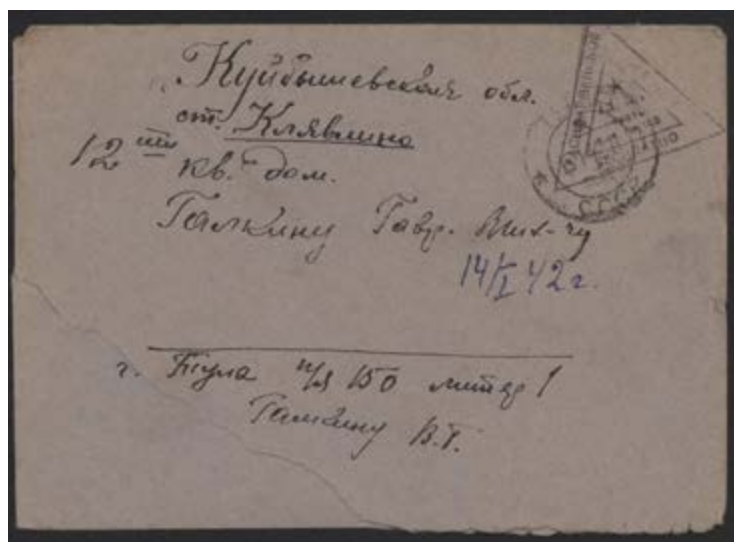 Куйбышевская обл.
ст. Клявлино
12ти кв. дом.
Галкину Гавр. Мих-чу
14/I 42 г.
г. Тула п/я 150 литер 1
Галкину В.Г.
СССР